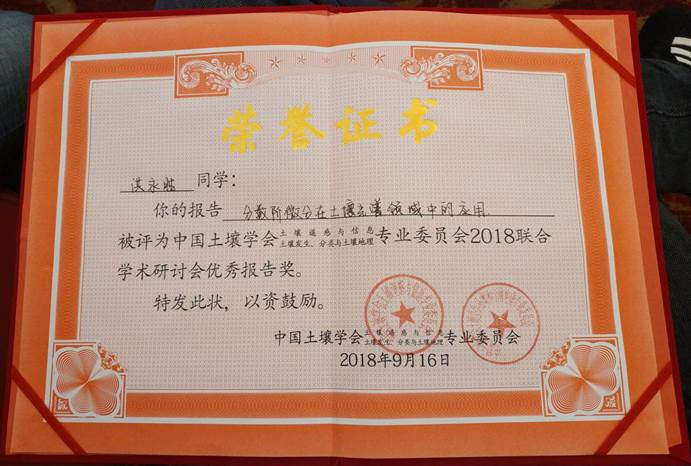 荣誉证书
洪永胜 同学：
你的报告 分数阶微分在土壤光谱领域中的应用
被评为中国土壤学会土壤遥感与信息 土壤发生、分类与土壤地理专业委员会2018联合
学术研讨会优秀报告奖。
特发此状，以资鼓励。
中国土壤学会土壤遥感与信息 土壤发生、分类与土壤地理专业委员会
2018年9月16日